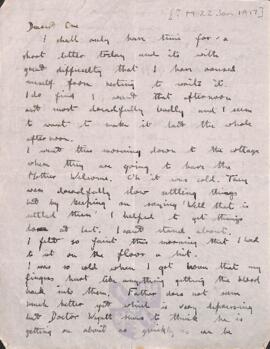 [? M. 22 Jan. 1917]
Dearest One
I shall only have time for a
short letter today and its with
great difficulty that I have roused
myself from resting to write it.
I do find I want that afternoon
rest most dreadfully badly and I seem
to want to make it last the whole
afternoon.
I went this morning down to the cottage
where they are going to have the
Mother Welcome. Oh it was cold. They
were dreadfully slow settling things
but by keeping on saying 'Well that is
settled then' I helped to get things
done at last. I can't stand about.
I felt so faint this morning that I had
to sit on the floor a bit.
I was so cold when I got home that my
fingers hurt like anything getting the blood
back into them. Father does not seem
much better yet which is very depressing
but Doctor Wyatt seems to think he is
getting on about as quickly as can be